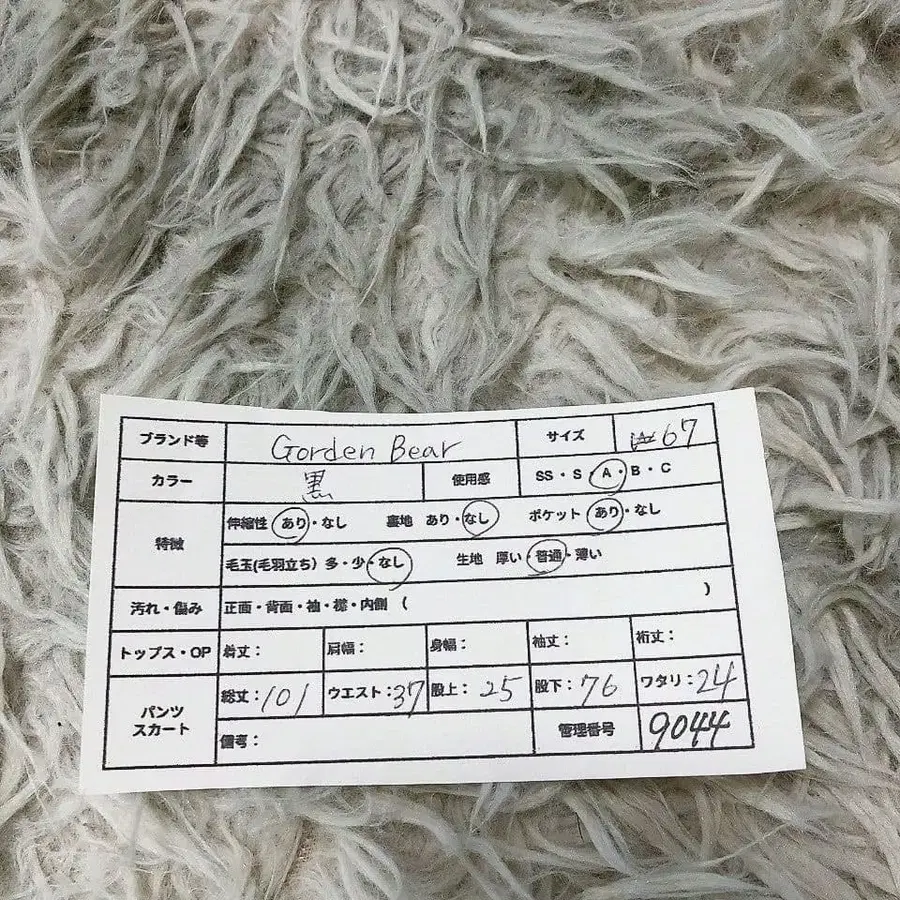 ブランド等 Gorden Bear サイズ W67
カラー 黒 使用感 SS・S・A・B・C
特徴 伸縮性 あり・なし 裏地 あり・なし ポケット あり・なし
毛玉(毛羽立ち) 多・少・なし 生地 厚い・普通・薄い
汚れ・傷み 正面・背面・袖・襟・内側 ( )
トップス・OP 着丈: 肩幅: 身幅: 袖丈: 裄丈:
パンツ スカート 総丈:101 ウエスト:37 股上:25 股下:76 ワタリ:24
備考: 管理番号 9044